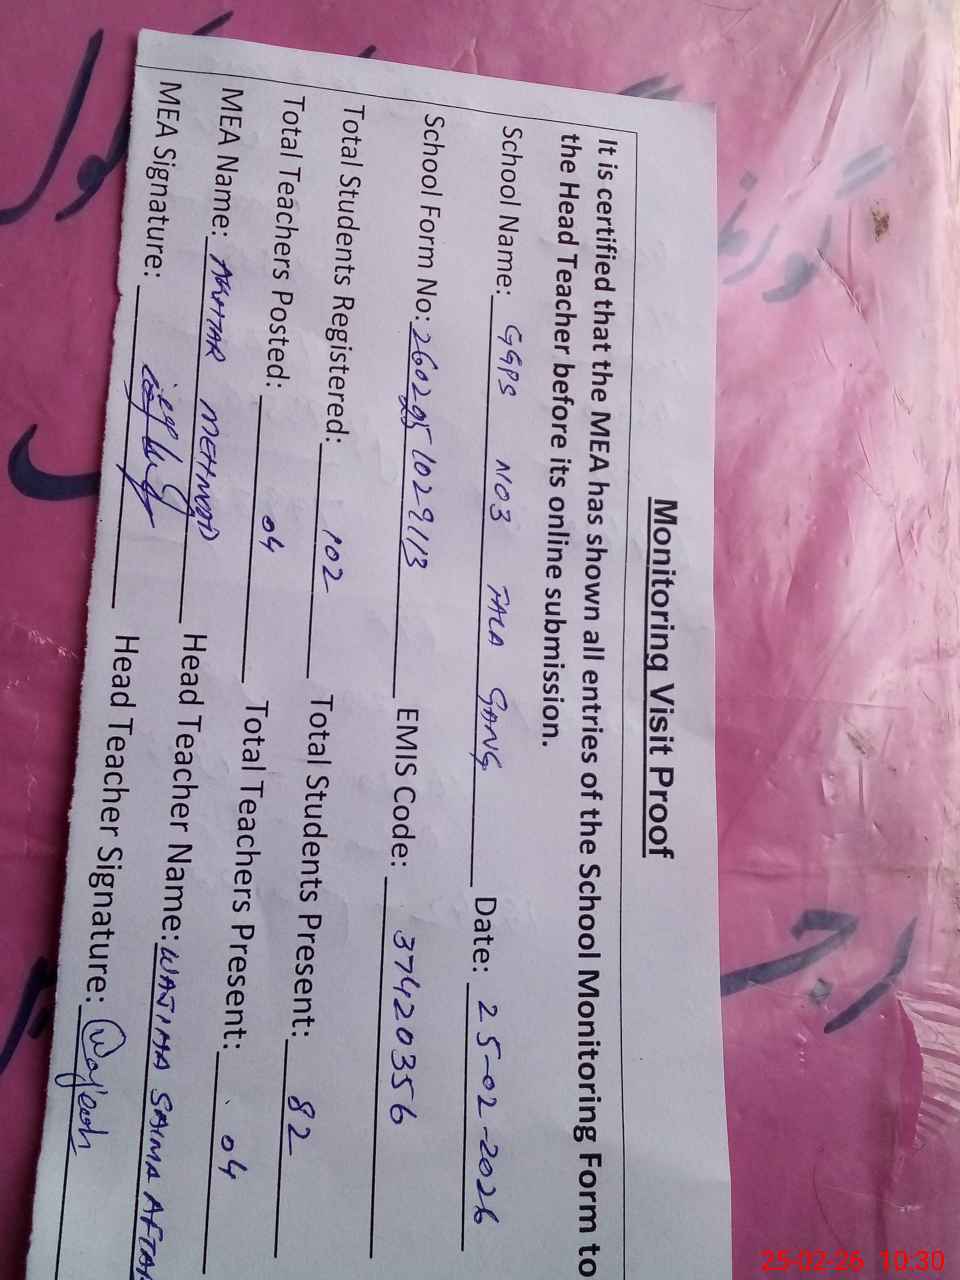 Monitoring Visit Proof
It is certified that the MEA has shown all entries of the School Monitoring Form to
the Head Teacher before its online submission.
School Name: GGPS NO3 TALA GANG Date: 25-02-2026
School Form No: 2602951029113 EMIS Code: 37420356
Total Students Registered: 102 Total Students Present: 82
Total Teachers Posted: 04 Total Teachers Present: 04
MEA Name: AKHTAR MEHMOOD Head Teacher Name: WAJIHA SAIMA AFTAB
MEA Signature: Head Teacher Signature: Wajeeh
25-02-26 10:30